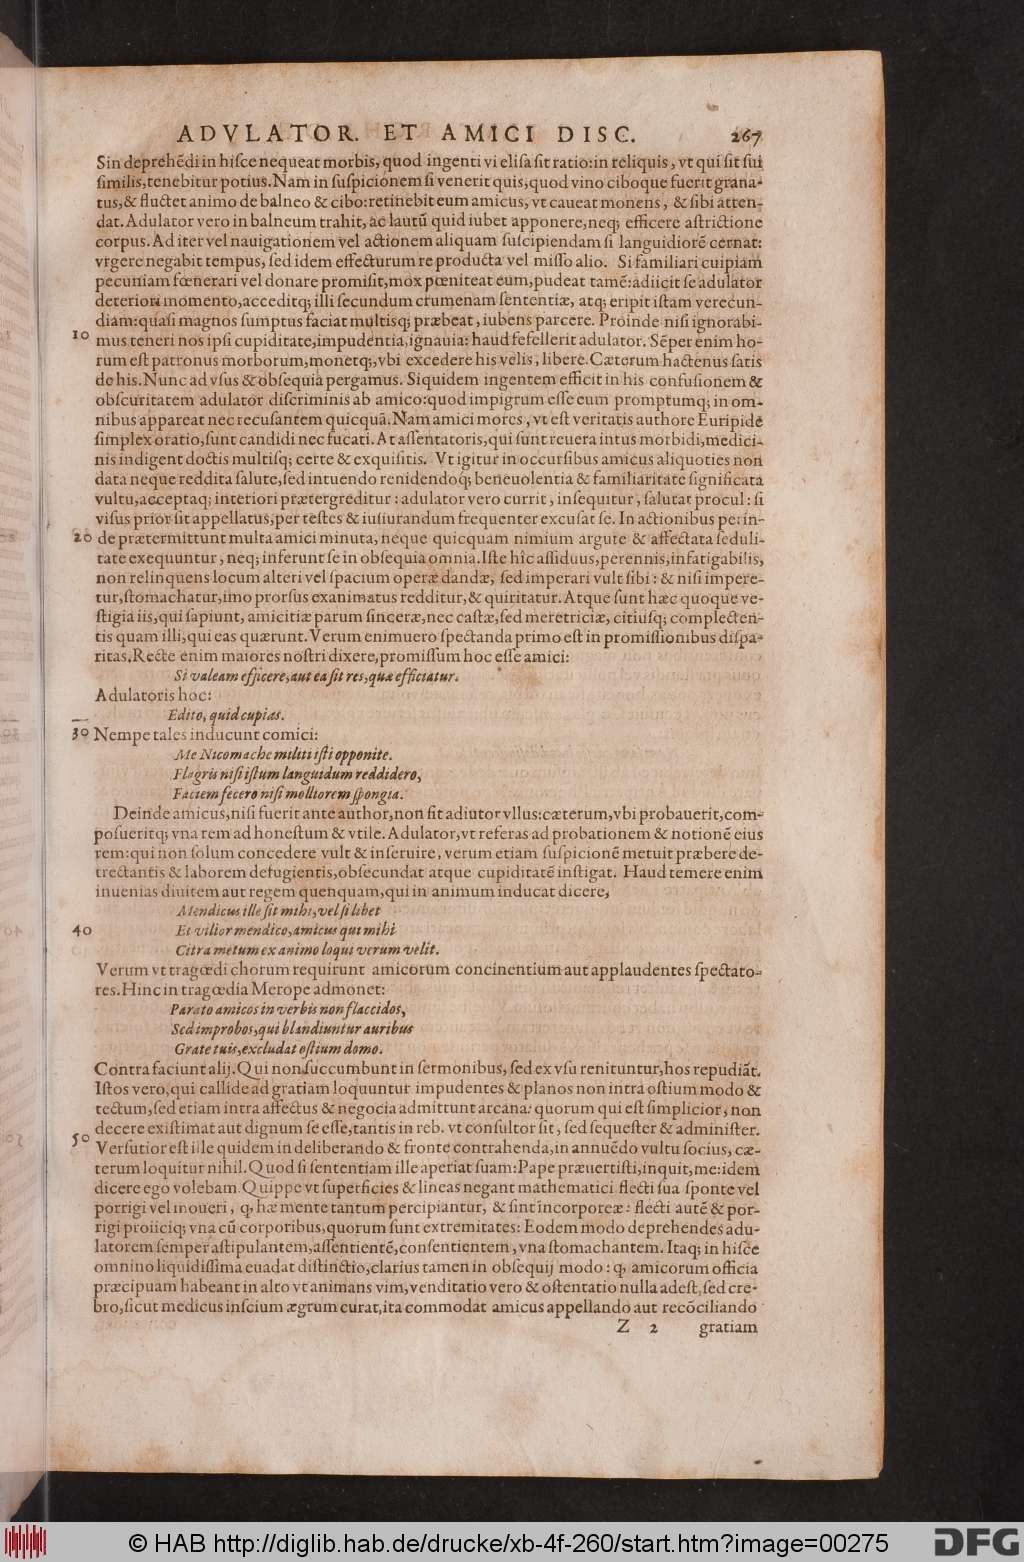 ADVLATOR. ET AMICI DISC. 267
Sin deprehẽdi in hisce nequeat morbis, quod ingenti vi elisa sit ratio: in reliquis, vt qui sit sui
similis, tenebitur potius. Nam in suspicionem si venerit quis, quod vino ciboque fuerit graua-
tus, & fluctet animo de balneo & cibo: retinebit eum amicus, vt caueat monens, & sibi atten-
dat. Adulator vero in balneum trahit, ac lautũ quid iubet apponere, neq; efficere astrictione
corpus. Ad iter vel nauigationem vel actionem aliquam suscipiendam si languidiorẽ cernat:
vrgere negabit tempus, sed idem effecturum re producta vel misso alio. Si familiari cuipiam
pecuniam fœnerari vel donare promisit, mox pœniteat eum, pudeat tamẽ: adiicit se adulator
deteriori momento, acceditq; illi secundum crumenam sententiæ, atq; eripit istam verecun-
diam: quasi magnos sumptus faciat multisq; præbeat, iubens parcere. Proinde nisi ignorabi-
10 mus teneri nos ipsi cupiditate, impudentia, ignauia: haud fefellerit adulator. Sẽper enim ho-
rum est patronus morborum, monetq;, vbi excedere his velis, libere. Cæterum hactenus satis
de his. Nunc ad vsus & obsequia pergamus. Siquidem ingentem efficit in his confusionem &
obscuritatem adulator discriminis ab amico: quod impigrum esse eum promptumq; in om-
nibus appareat nec recusantem quicquã. Nam amici mores, vt est veritatis authore Euripide
simplex oratio, sunt candidi nec fucati. At assentatoris, qui sunt reuera intus morbidi, medici-
nis indigent doctis multisq; certe & exquisitis. Vt igitur in occursibus amicus aliquoties non
data neque reddita salute, sed intuendo renidendoq; beneuolentia & familiaritate significata
vultu, acceptaq; interiori prætergreditur: adulator vero currit, insequitur, salutat procul: si
visus prior sit appellatus, per testes & iusiurandum frequenter excusat se. In actionibus perin-
20 de prætermittunt multa amici minuta, neque quicquam nimium argute & affectata seduli-
tate exequuntur, neq; inferunt se in obsequia omnia. Iste hîc assiduus, perennis, infatigabilis,
non relinquens locum alteri vel spacium operæ dandæ, sed imperari vult sibi: & nisi impere-
tur, stomachatur, imo prorsus exanimatus redditur, & quiritatur. Atque sunt hæc quoque ve-
stigia iis, qui sapiunt, amicitiæ parum sinceræ, nec castæ, sed meretriciæ, citiusq; complecten-
tis quam illi, qui eas quærunt. Verum enimuero spectanda primo est in promissionibus dispa-
ritas. Recte enim maiores nostri dixere, promissum hoc esse amici:
Si valeam efficere, aut ea sit res, quæ efficiatur.
Adulatoris hoc:
Edito, quid cupias.
30 Nempe tales inducunt comici:
Me Nicomache militi isti opponite.
Flagris nisi istum languidum reddidero,
Faciem fecero nisi molliorem spongia.
Deinde amicus, nisi fuerit ante author, non fit adiutor vllus: cæterum, vbi probauerit, com-
posueritq; vna rem ad honestum & vtile. Adulator, vt referas ad probationem & notionẽ eius
rem: qui non solum concedere vult & inseruire, verum etiam suspicionẽ metuit præbere de-
trectantis & laborem defugientis, obsecundat atque cupiditatẽ instigat. Haud temere enim
inuenias diuitem aut regem quenquam, qui in animum inducat dicere,
Mendicus ille sit mihi, vel si libet
40 Et vilior mendico, amicus qui mihi
Citra metum ex animo loqui verum velit.
Verum vt tragœdi chorum requirunt amicorum concinentium aut applaudentes spectato-
res. Hinc in tragœdia Merope admonet:
Parato amicos in verbis non flaccidos,
Sed improbos, qui blandiuntur auribus
Grate tuis, excludat ostium domo.
Contra faciunt alij. Qui non succumbunt in sermonibus, sed ex vsu renituntur, hos repudiãt.
Istos vero, qui callide ad gratiam loquuntur impudentes & planos non intra ostium modo &
tectum, sed etiam intra affectus & negocia admittunt arcana: quorum qui est simplicior, non
decere existimat aut dignum se esse, tantis in reb. vt consultor sit, sed sequester & administer.
50 Versutior est ille quidem in deliberando & fronte contrahenda, in annuẽdo vultu socius, cæ-
terum loquitur nihil. Quod si sententiam ille aperiat suam: Pape præuertisti, inquit, me: idem
dicere ego volebam. Quippe vt superficies & lineas negant mathematici flecti sua sponte vel
porrigi vel moueri, q, hæ mente tantum percipiantur, & sint incorporeæ: flecti autẽ & por-
rigi proiiciq; vna cũ corporibus, quorum sunt extremitates: Eodem modo deprehendes adu-
latorem semper astipulantem, assentientẽ, consentientem, vna stomachantem. Itaq; in hisce
omnino liquidissima euadat distinctio, clarius tamen in obsequij modo: q, amicorum officia
præcipuam habeant in alto vt animans vim, venditatio vero & ostentatio nulla adest, sed cre-
bro, sicut medicus inscium ægrum curat, ita commodat amicus appellando aut recõciliando
Z 2 gratiam
© HAB http://diglib.hab.de/drucke/xb-4f-260/start.htm?image=00275
DFG